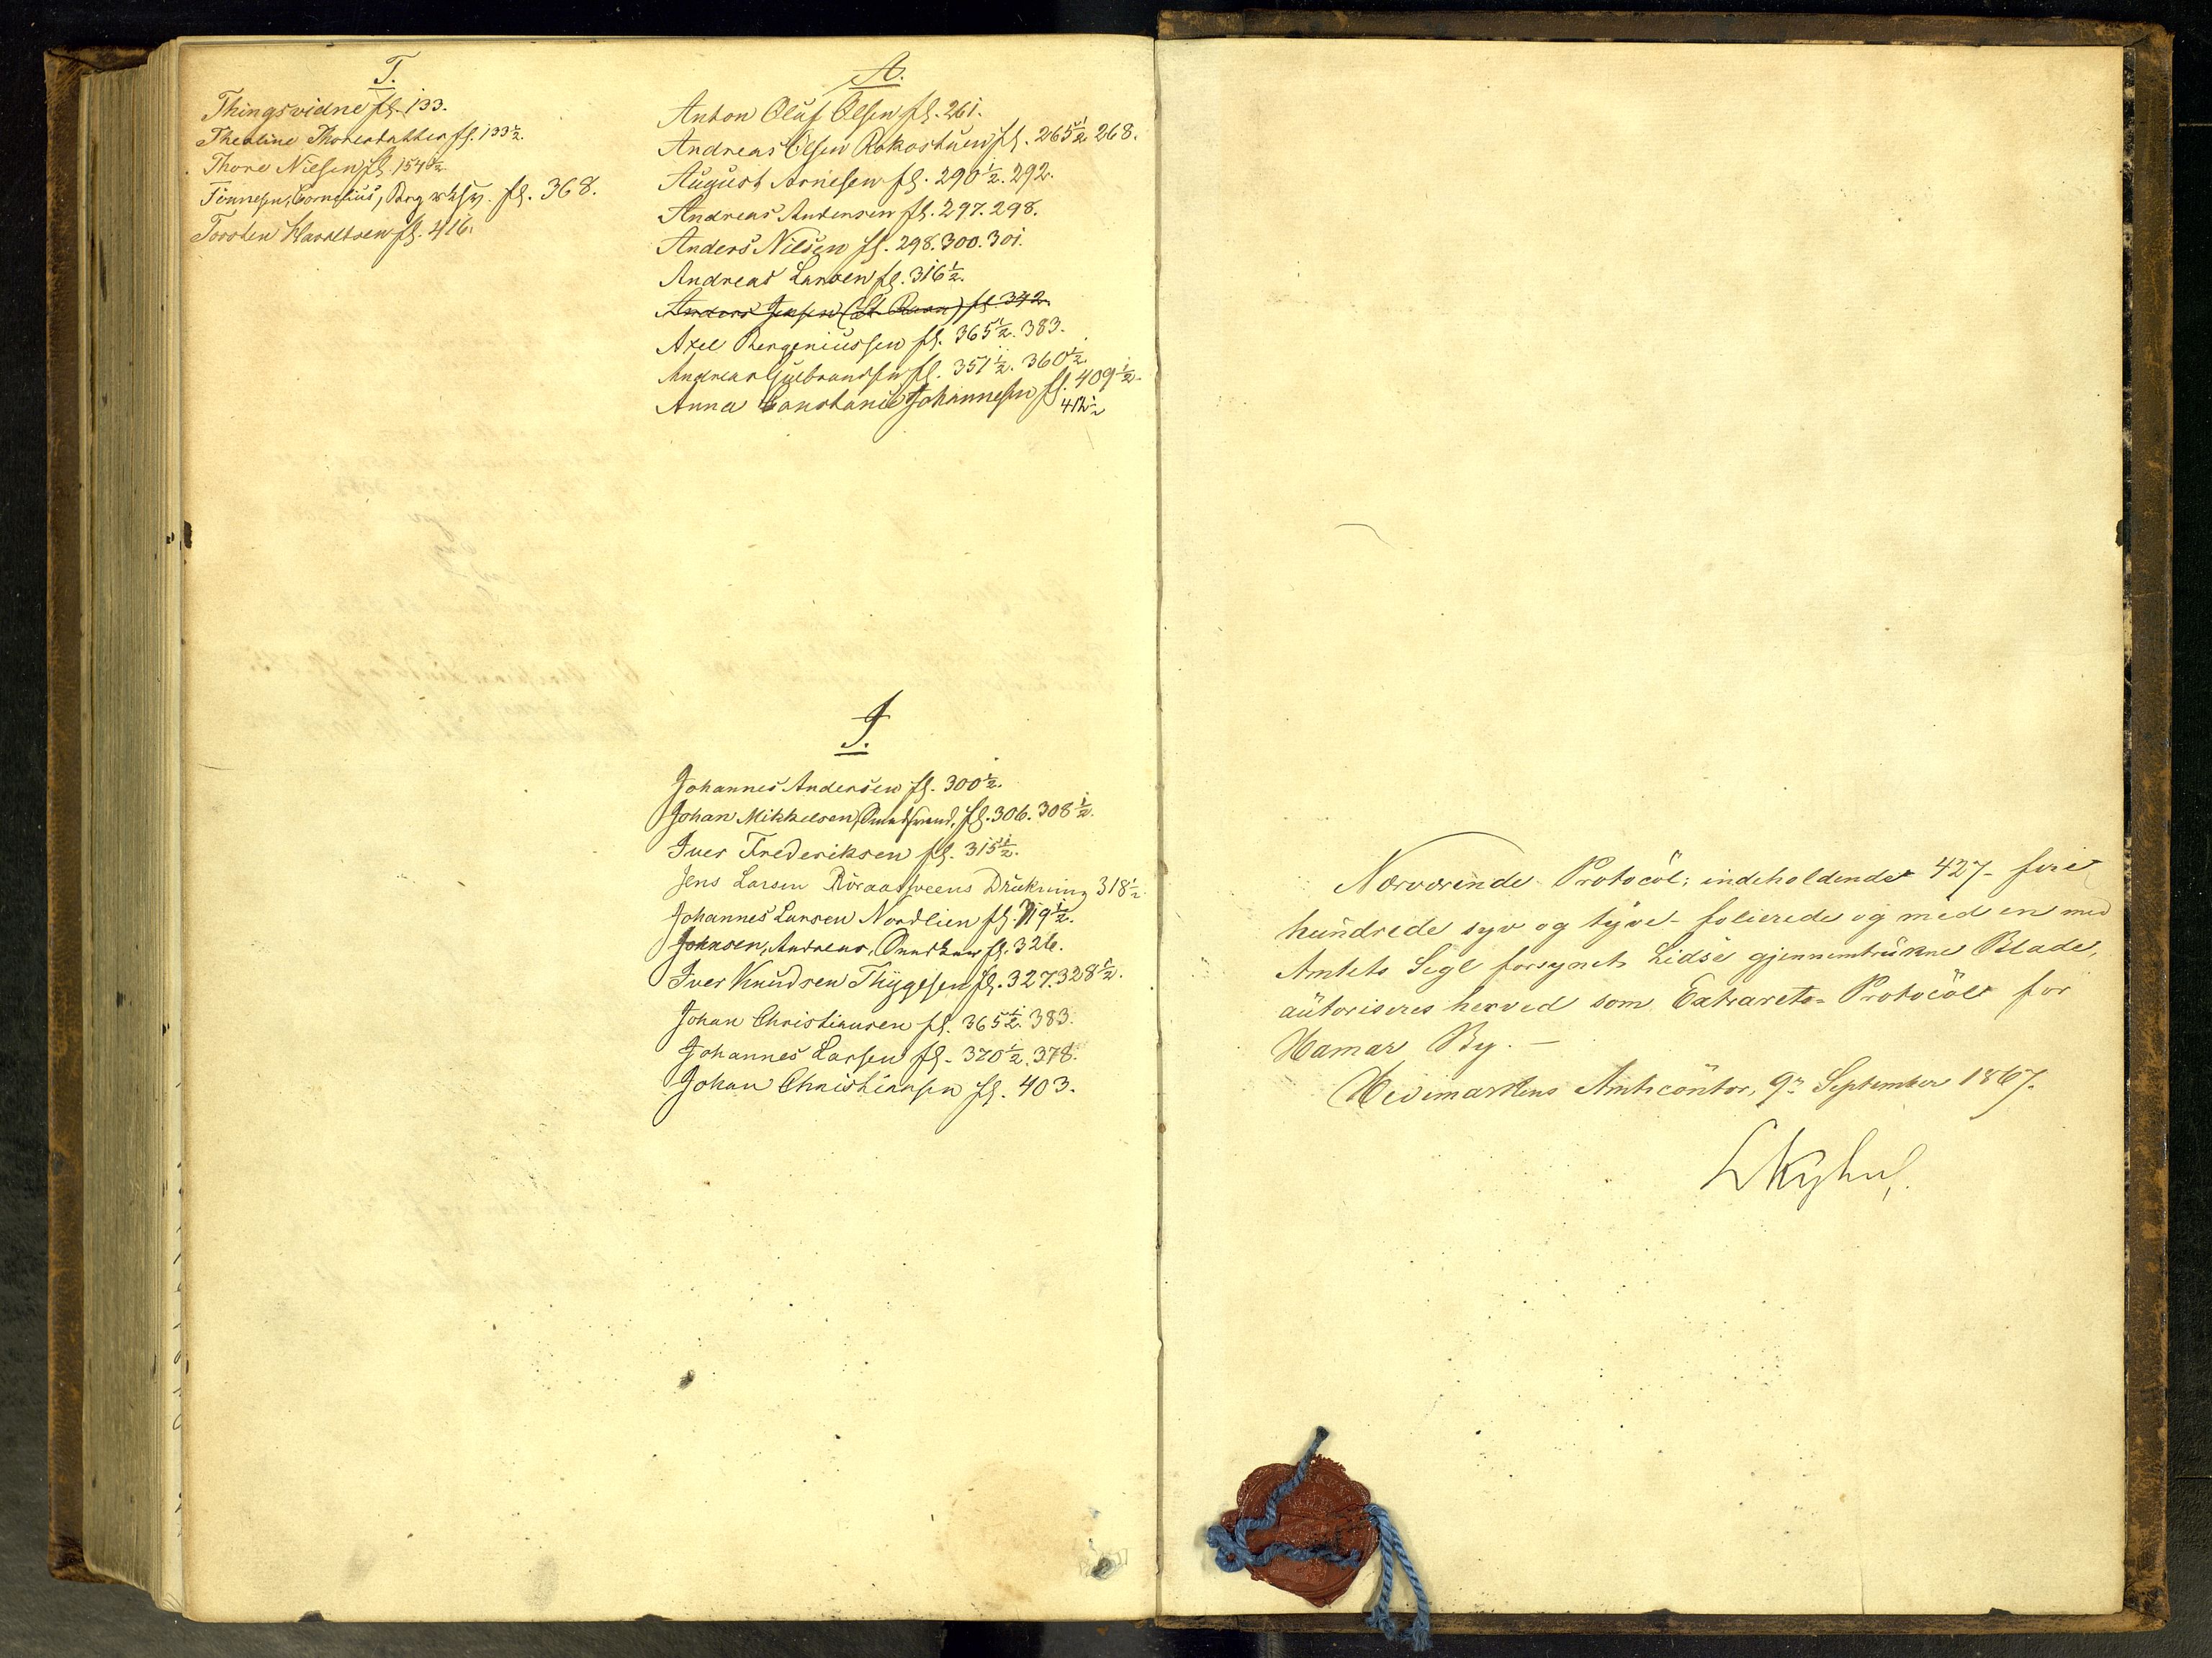 T.
Thingsvidne fl. 133.
Theoline Thorersdatter fl. 133½.
Thore Nielsen fl. 154½
Tönnesen, Cornelius, fl. 368.
Torsten Haraldsen fl. 416.
A.
Anton Oluf Olsen fl. 261.
Andreas Olsen Rokostuen fl. 265½ 268.
August Arnesen fl. 290½. 292.
Andreas Andersen fl. 297. 298.
Anders Nilsen fl. 298. 300. 301.
Andreas Larsen fl. 316½.
Anders Jensen fl. 342.
Axel Bergeniussen fl. 365½. 383.
Andreas Gulbrandsen fl. 351½. 360½.
Anna Constance Johannesen fl. 409½.
412½
J.
Johannes Andersen fl. 300½.
Johan Mikkelsen, fl. 306. 308½.
Iver Frederiksen fl. 315½.
Jens Larsen Röraasveens Drukning 318½
Johannes Larsen Nordlien fl. 319½.
Johnsen, Andreas, fl. 326.
Iver Knudsen Thygesen fl. 327. 328½.
Johan Christiansen fl. 365½. 383.
Johannes Larsen fl. 370½. 378.
Johan Christiansen fl. 403.
Nærværende Protocol; indeholdende 427 - fire
hundrede syv og tyve - folierede og med en med
Amtets Segl forsynet Lidse gjennemtrukne Blade,
autoriseres herved som Extrarets-Protocol for
Hamar By. -
Hedemarkens Amtscontor, 9de September 1867.